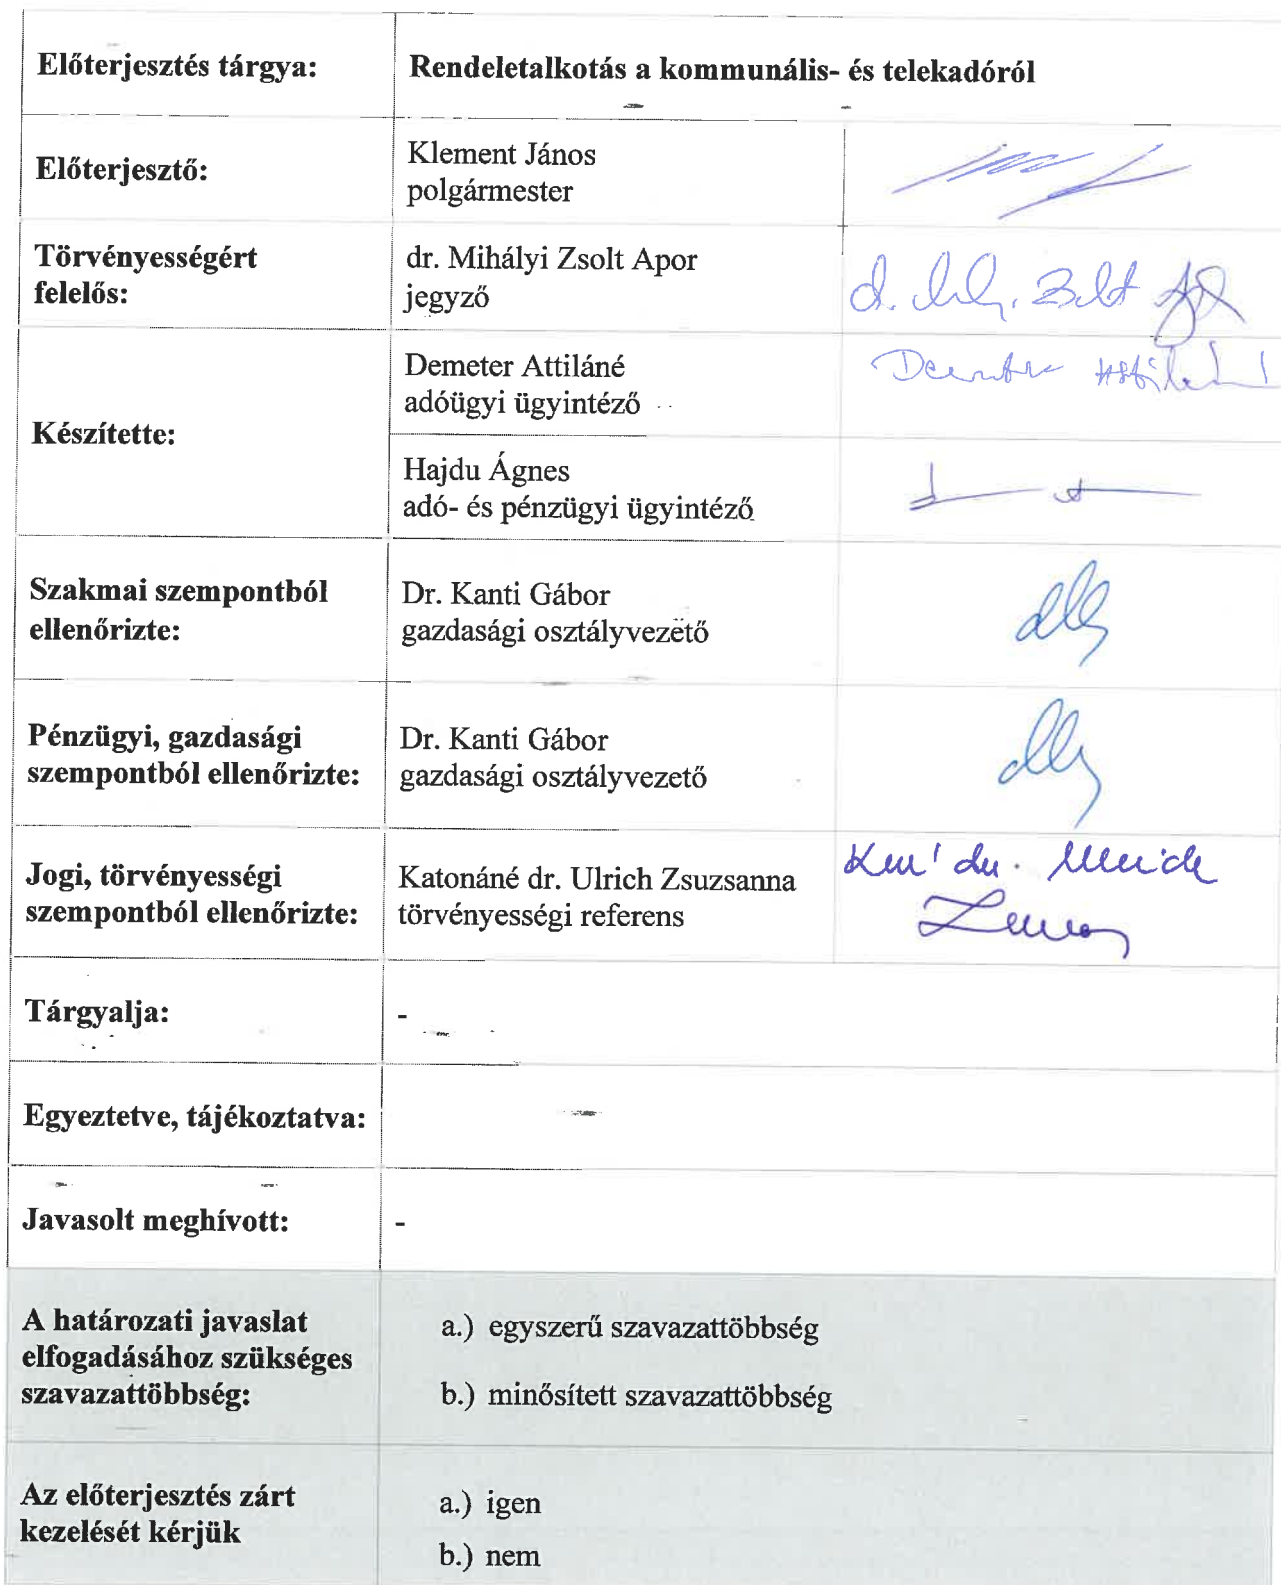 Előterjesztés tárgya:
Rendeletalkotás a kommunális- és telekadóról
Előterjesztő:
Klement János
polgármester
Törvényességért
felelős:
dr. Mihályi Zsolt Apor
jegyző
Készítette:
Demeter Attiláné
adóügyi ügyintéző
Hajdu Ágnes
adó- és pénzügyi ügyintéző
Szakmai szempontból
ellenőrizte:
Dr. Kanti Gábor
gazdasági osztályvezető
Pénzügyi, gazdasági
szempontból ellenőrizte:
Dr. Kanti Gábor
gazdasági osztályvezető
Jogi, törvényességi
szempontból ellenőrizte:
Katonáné dr. Ulrich Zsuzsanna
törvényességi referens
Tárgyalja:
-
Egyeztetve, tájékoztatva:
Javasolt meghívott:
-
A határozati javaslat
elfogadásához szükséges
szavazattöbbség:
a.) egyszerű szavazattöbbség
b.) minősített szavazattöbbség
Az előterjesztés zárt
kezelését kérjük
a.) igen
b.) nem